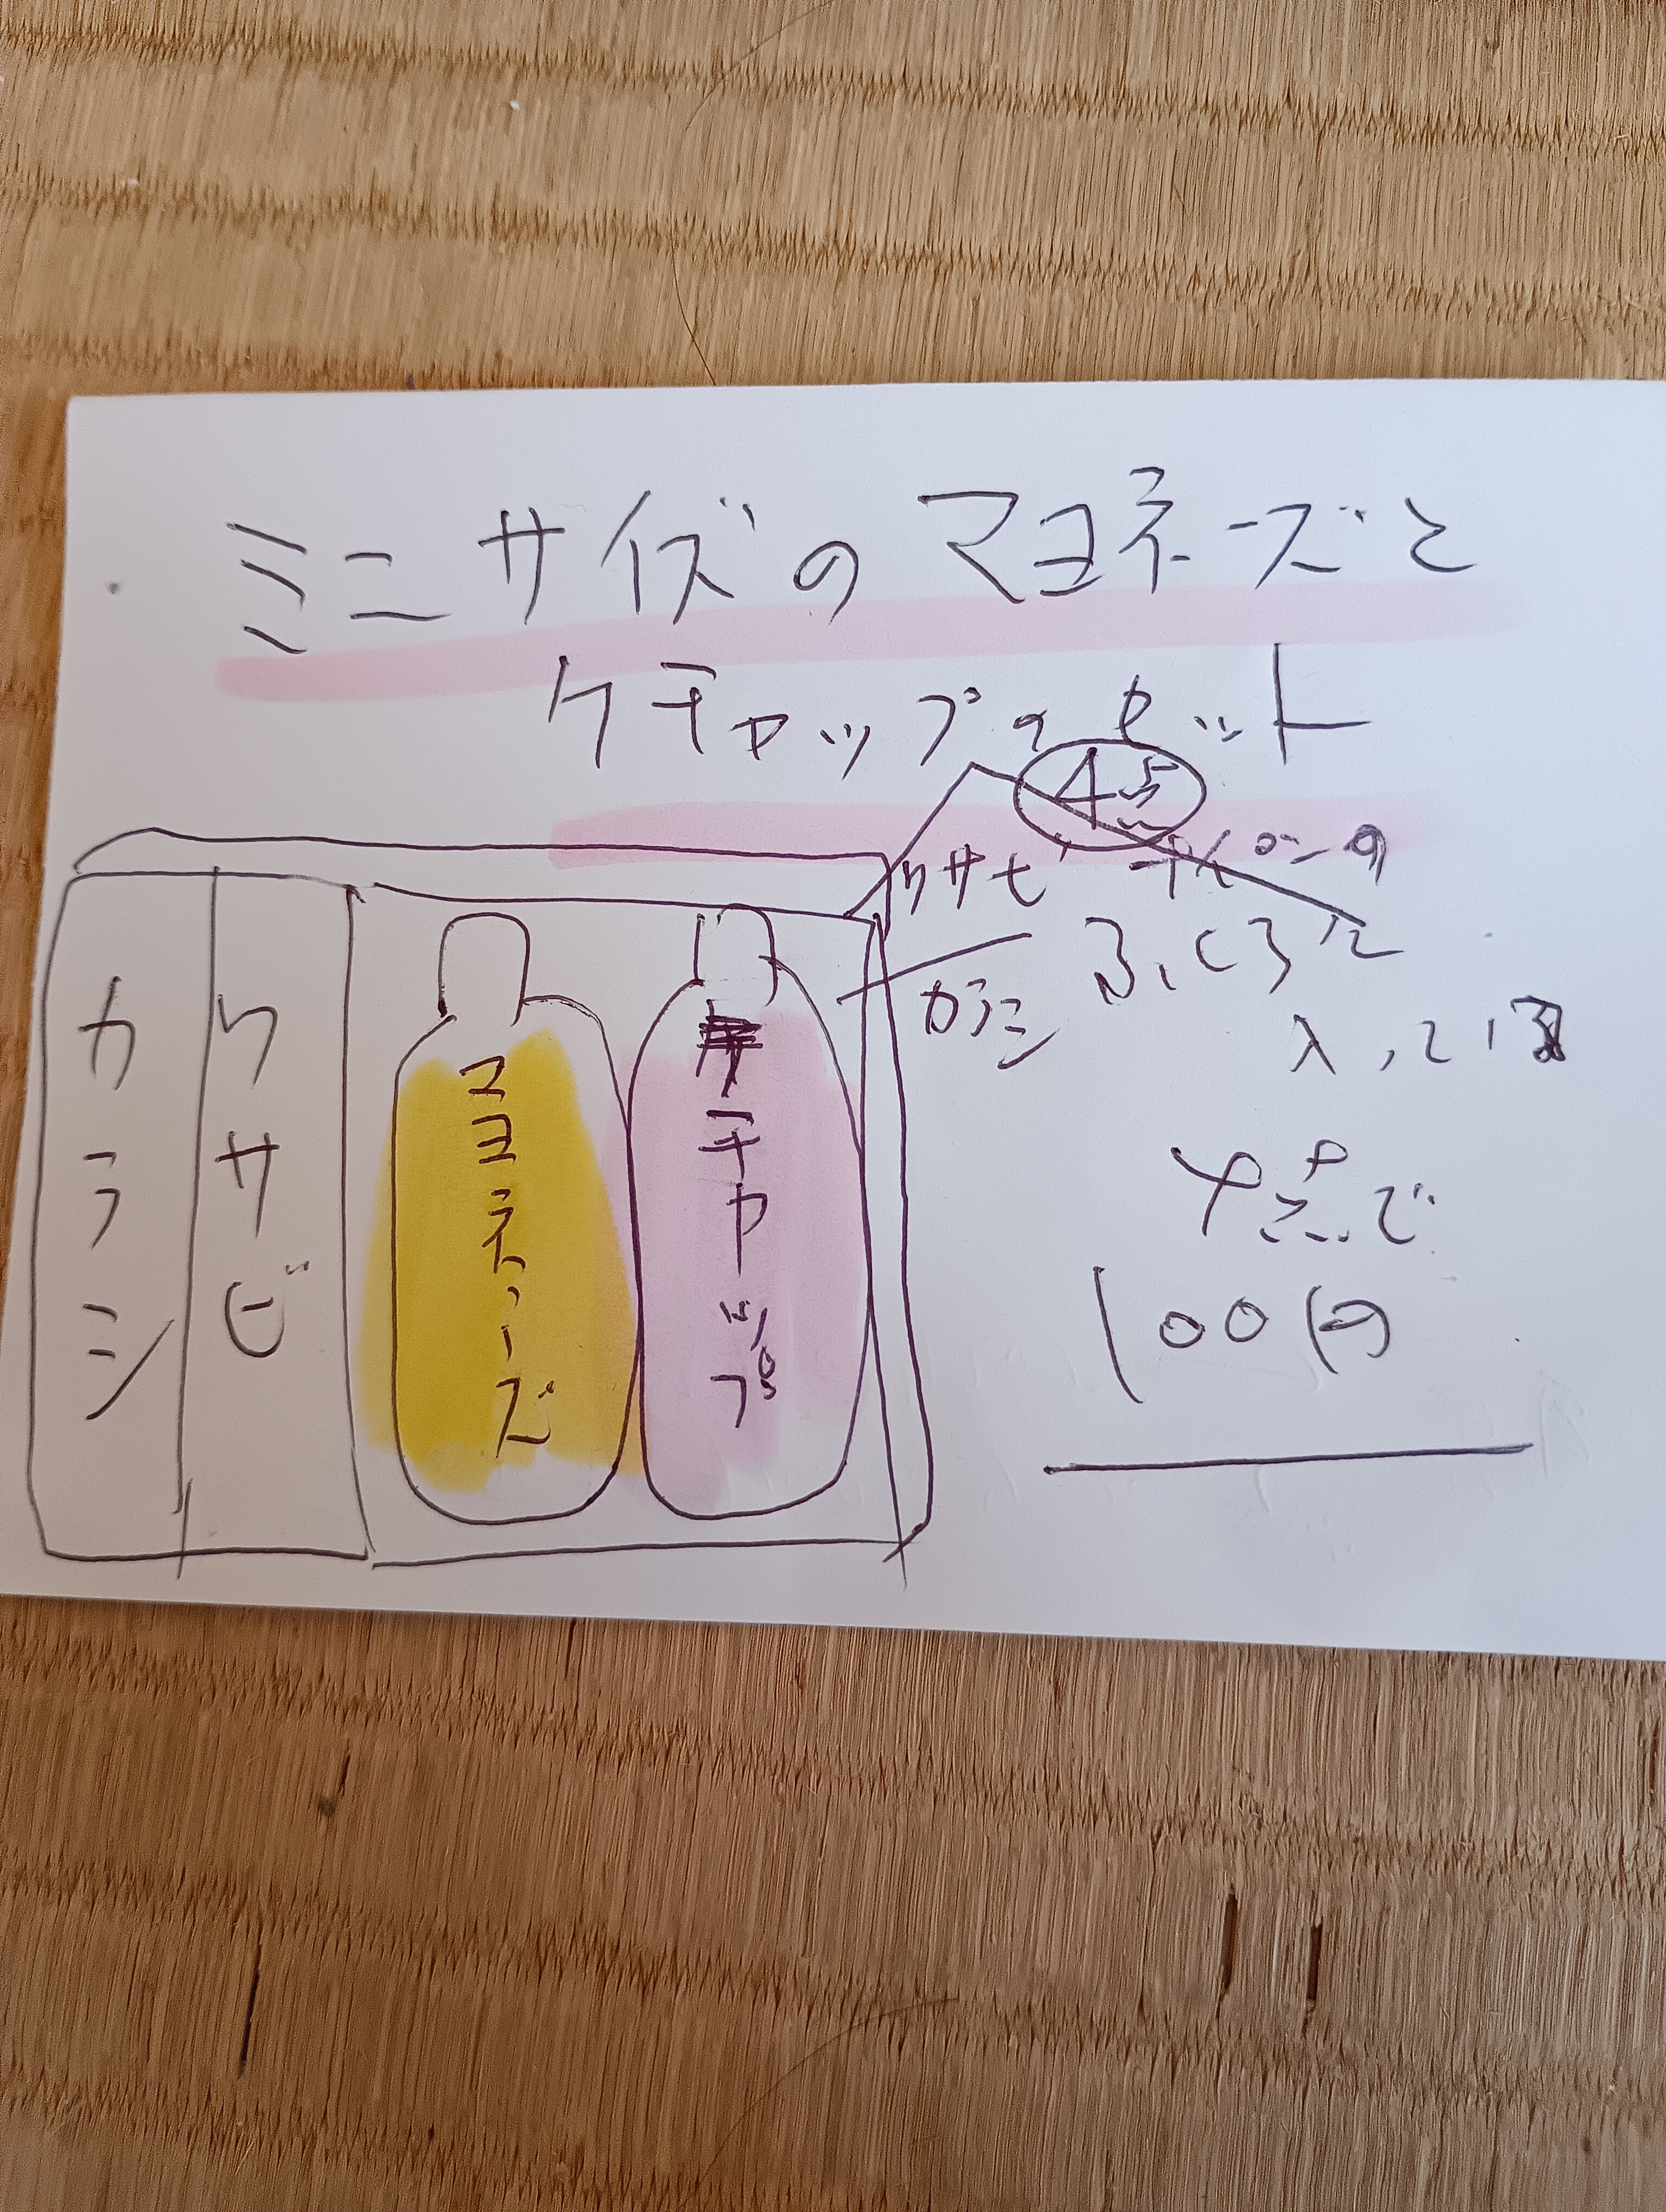 ミニサイズのマヨネーズと
ケチャップのセット
4点
ワサビ
カラシ
ふくろに
入っている
4点で
100円
カラシ
ワサビ
マヨネーズ
チャップ